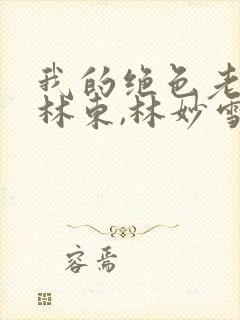 我的绝色老
林东,林妙雪
容焉